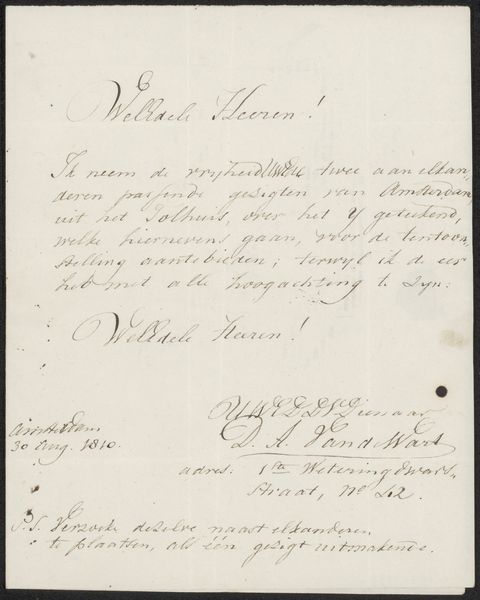 WelEdele Heeren!
Ik neem de vrijheid UWEd: twee aan elkan,
deren passende gezigten van Amsterdam,
uit het Tolhuis, over het Y geteekend,
welke hiernevens gaan, voor de tentoon,
stelling aantebieden; terwyl ik de eer
heb met alle hoogachting te zyn:
WelEdele Heeren!
UWEDDW Dienaar
Amsterdam
30 Aug. 1810.
D. A. Van de Wart
adres: 1ste Weteringdwars-
straat, No 42.
P.S. Verzoeke dezelve naast elkanderen
te plaatsen, als één gezigt uitmakende.